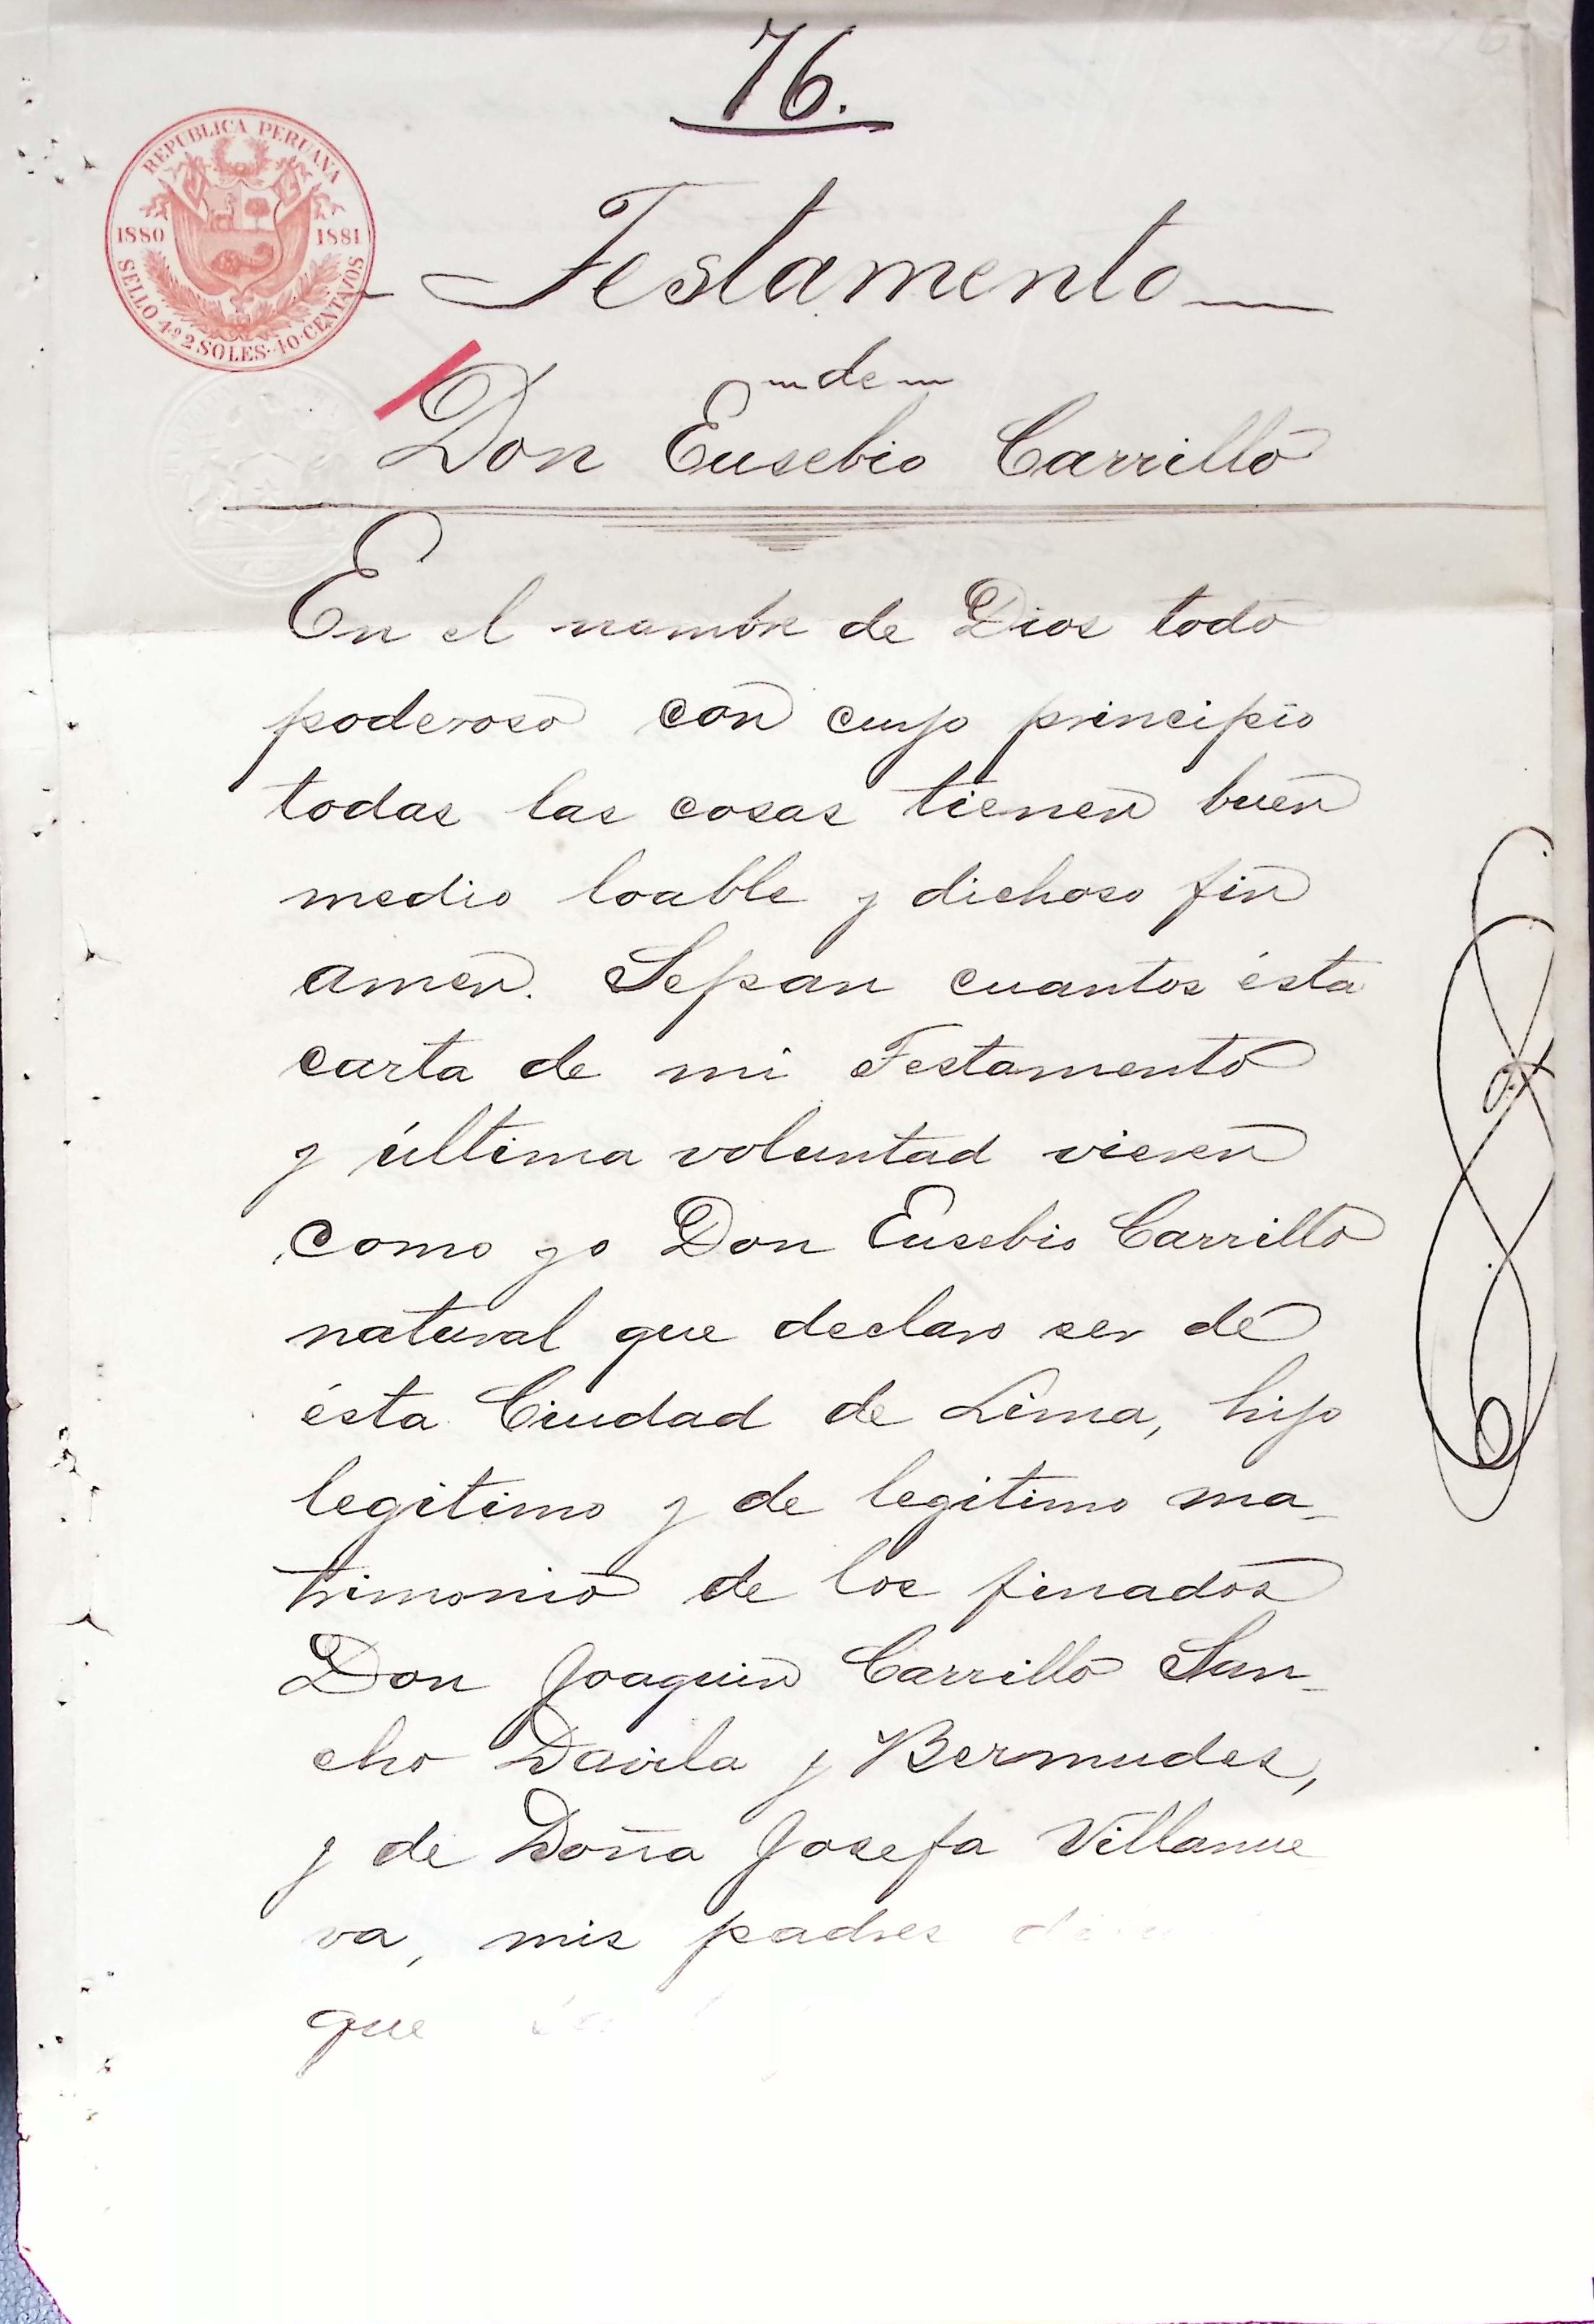 76.
REPUBLICA PERUANA
1880 1881
SELLO 4º 2 SOLES 40 CENTAVOS
Testamento
de
Don Eusebio Carrillo
En el nombre de Dios todo
poderoso con cuyo principio
todas las cosas tienen buen
medio loable y dichoso fin
amen. Sepan cuantos ésta
carta de mi Testamento
y última voluntad vieren
como yo Don Eusebio Carrillo
natural que declaro ser de
ésta Ciudad de Lima, hijo
legitimo y de legitimo ma-
trimonio de los finados
Don Joaquin Carrillo San-
cho Davila y Bermudes,
y de Doña Josefa Villanue
va, mis padres
que